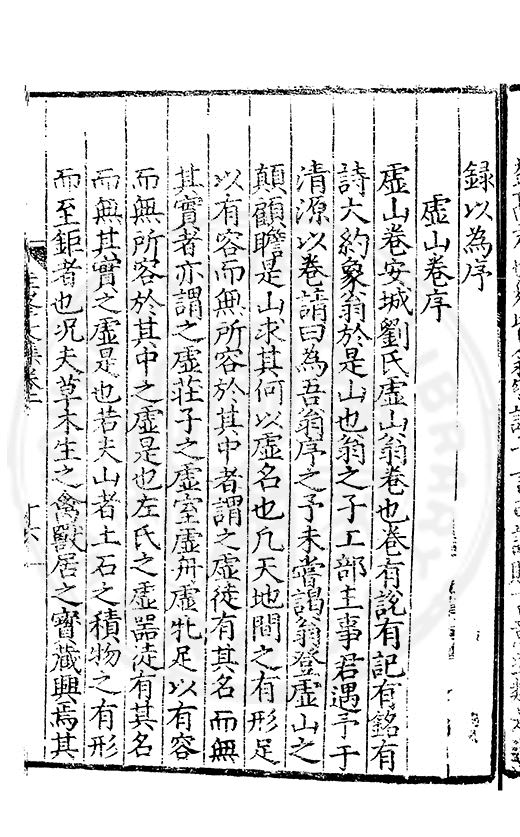 録以為序
虛山卷序
虛山卷安城劉氏虛山翁卷也卷有說有記有銘有
詩大約象翁於是山也翁之子工部主事君遇予于
清源以卷請曰為吾翁序之予未嘗謁翁登虛山之
顛顧瞻是山求其何以虛名也凡天地間之有形足
以有容而無所容於其中者謂之虛徒有其名而無
其實者亦謂之虛莊子之虛室虛舟虛牝足以有容
而無所容於其中之虛是也左氏之虛器徒有其名
而無其實之虛是也若夫山者土石之積物之有形
而至鉅者也况夫草木生之禽獸居之寳藏興焉其
文集卷
十六